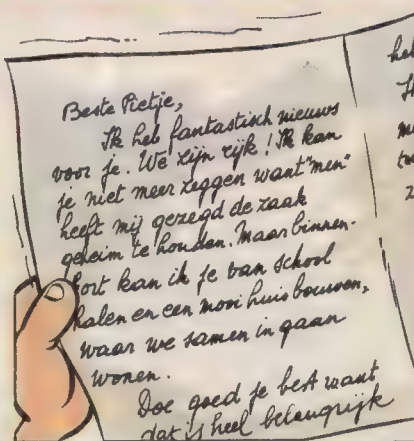 Beste Pietje,
Ik heb fantastisch nieuws
voor je. We zijn rijk! Ik kan
je niet meer zeggen want "men"
heeft mij gezegd de zaak
geheim te houden. Maar binnen-
kort kan ik je van school
halen en een mooi huis bouwen,
waar we samen in gaan
wonen.
Doe goed je best want
dat is heel belangrijk